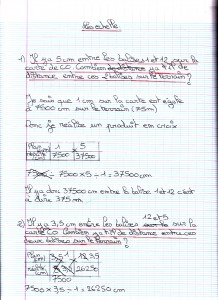 L'échelle
1) Il y a 5 cm entre les balises 1 et 12 sur la
carte de CO. Combien y a t'il de
distance entre ces 2 balises sur le terrain?
Je sais que 1 cm sur la carte est égale
à 7500 cm sur le terrain (75m)
Donc je réalise un produit en croix
1 5
réalité 7500 37500
7500 × 5 ÷ 1 = 37500 cm
Il y a donc 37500 cm entre la balise 1 et 12 c'est
à dire 375 m.
12 et 5
2) Il y a 3,5 cm entre les balises sur la
carte CO combien y a t'il de distance entre ces
deux balises sur le terrain?
1 3,5
réalité 26250
7500
7500 × 3,5 ÷ 1 = 26250 cm